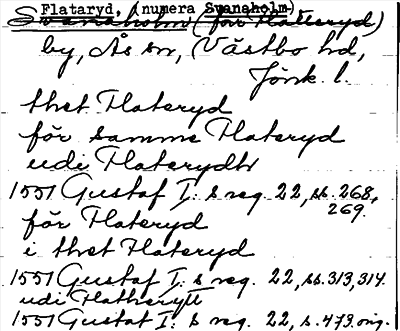 Flataryd, (numera Svanaholm)
Svanaholm (förr Flatteryd)
by, Ås sn, Västbo hd,
Jönk. l.
thet Flateryd
för samme Flateryd
udi Flaterydh
1551 Gustaf I:s reg. 22, ss. 268,
269.
för Flateryd
i thet Flateryd
1551 Gustaf I:s reg. 22, ss. 313, 314.
udi Flatherytt
1551 Gustaf I:s reg. 22, s. 479. orig.